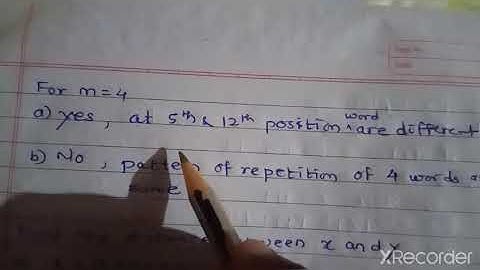 For m=4
a) yes, at 5th & 12th position word are different
b) No, pattern of repetition of 4 words
same
between x and y
XRecorder